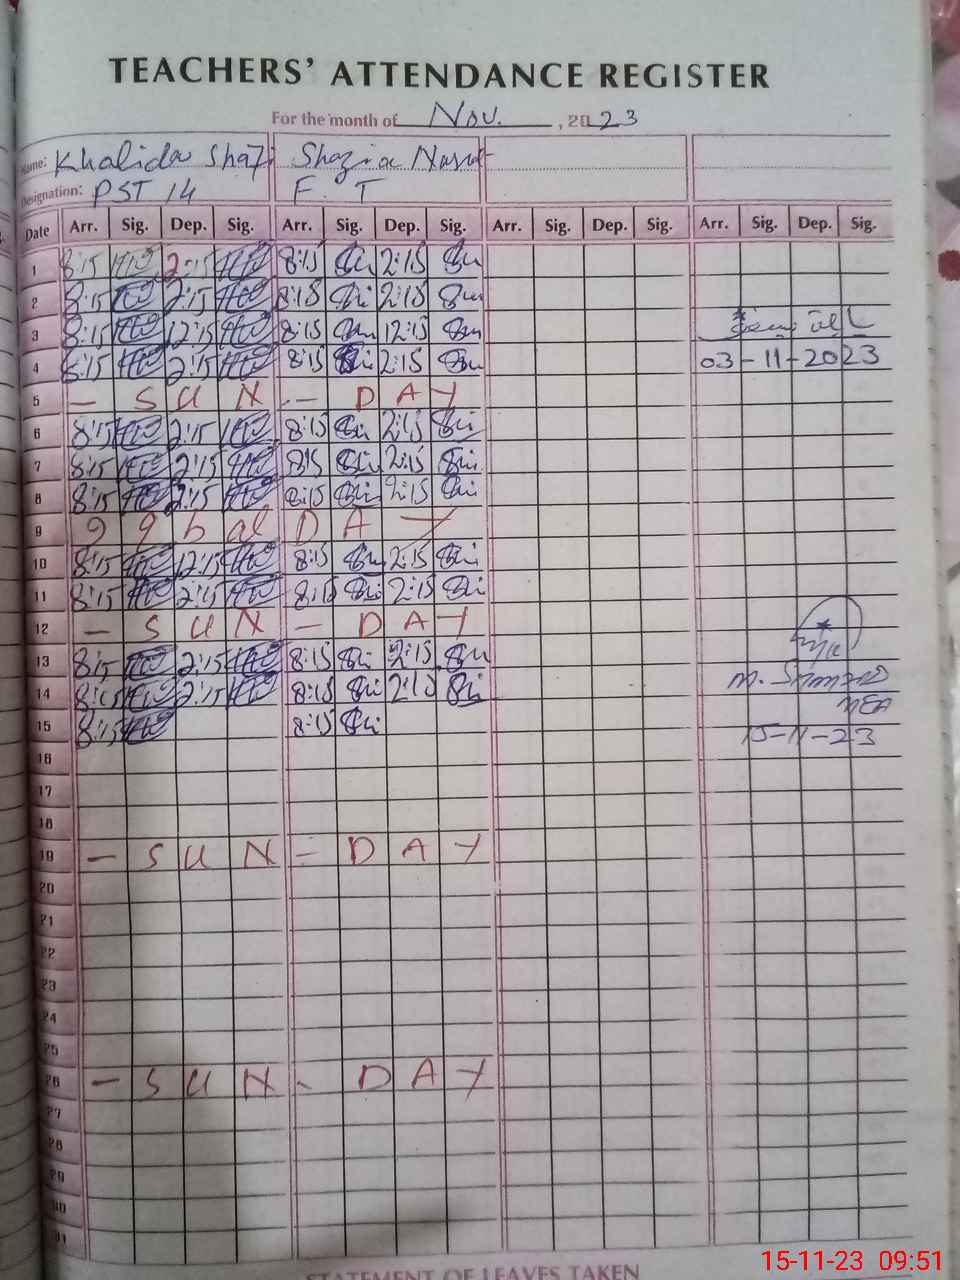 TEACHERS' ATTENDANCE REGISTER
For the month of Nov. , 2023
Name: Khalida Shafi Shazia
Designation: PST 14 F. T
Date Arr. Sig. Dep. Sig. Arr. Sig. Dep. Sig. Arr. Sig. Dep. Sig. Arr. Sig. Dep. Sig.
1 8:15 2:15 8:15 2:15
2 8:15 2:15 8:15 2:15
3 8:15 12:15 8:15 12:15
4 8:15 2:15 8:15 2:15 03-11-2023
5 - SUN - DAY
6 8:15 2:15 8:15 2:15
7 8:15 2:15 8:15 2:15
8 8:15 2:15 8:15 2:15
9 9qbal DAY
10 8:15 12:15 8:15 2:15
11 8:15 2:15 8:15 2:15
12 - SUN - DAY
13 8:15 2:15 8:15 2:15
14 8:15 2:15 8:15 2:15 M.
15 8:15 8:15 MEA
15-11-23
16
17
18
19 - SUN - DAY
20
21
22
23
24
25
26 - SUN - DAY
27
28
29
30
31
STATEMENT OF LEAVES TAKEN
15-11-23 09:51